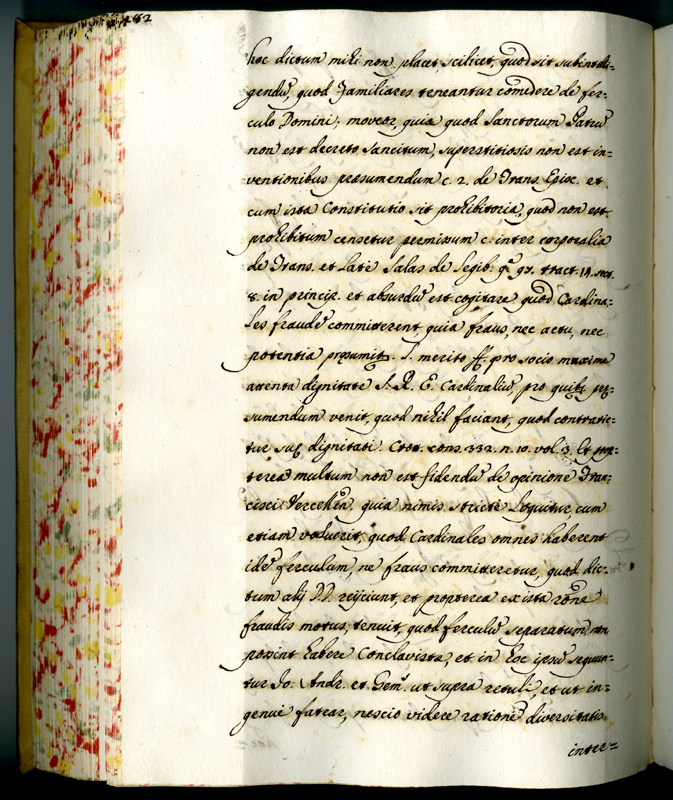 282
hoc dictum mihi non placet, scilicet, quod sit subintelli=
gendũ, quod Familiares teneantur comedere de fer=
culo Domini; moveor, quia quod Sanctorum Patrũ
non est decreto sancitum, superstitiosis non est in=
ventionibus præsumendum c. 2. de Trans. Episc. et
cum ista Constitutio sit prohibitoria, quod non est
prohibitum censetur permissum c. inter corporalia
de Trans. et late Salas de Legib. q. 97. tract. 14. sect.
8. in princip. et absurdũ est cogitare quod Cardina=
les fraudẽ committerent, quia fraus, nec actu, nec
potentia præsumit. L. merito ff. pro socio maxime
attenta dignitate S. R. E. Cardinaliũ, pro quibs præ=
sumendum venit, quod nihil faciant, quod contrarie=
tur suę dignitati. Crot. cons. 332. n. 10. vol. 3. Et prop=
terea multum non est fidendũ de opinione Fran=
cisci Vercelleñ. quia nimis stricte loquitur, cum
etiam voluerit, quod Cardinales omnes haberent
idẽ ferculum, ne fraus committeretur, quod dic=
tum alij DD. reijciunt, et propterea ex ista rõne
fraudis motus, tenuit, quod ferculũ separatum non
possint habere Conclavista, et in hoc ipsũ sequun=
tur Jo. Andr. et Gem. ut supra retuli, et ut in=
genue fatear, nescio videre rationẽ diversitatis
inter=